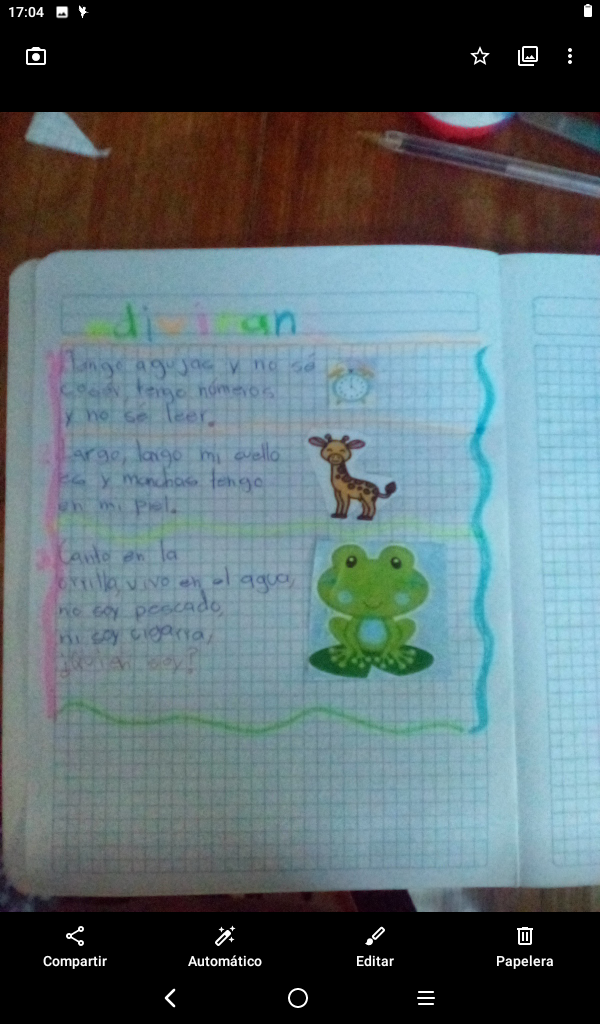 17:04
Tengo agujas y no sé
coser, tengo números
y no sé leer.
Largo, largo mi cuello
es y manchas tengo
en mi piel.
Canto en la
orrilla, vivo en el agua,
no soy pescado,
ni soy cigarra,
¿Quién soy?
Compartir
Automático
Editar
Papelera